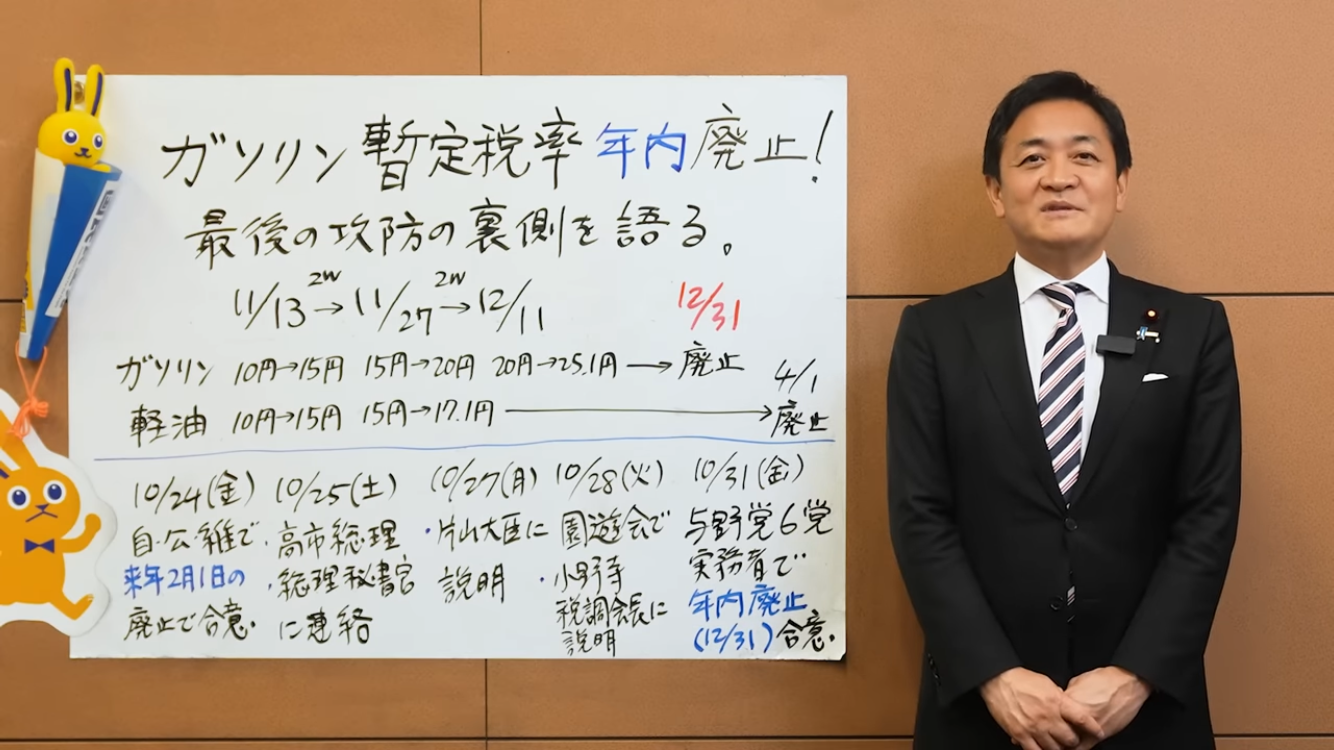 ガソリン暫定税率年内廃止!
最後の攻防の裏側を語る。
2W 2W
11/13→11/27→12/11 12/31
ガソリン 10円→15円 15円→20円 20円→25.1円→廃止 4/1
軽油 10円→15円 15円→17.1円→廃止
10/24(金) 10/25(土) 10/27(月) 10/28(火) 10/31(金)
自・公・維で
来年2月1日の
廃止で合意.
・高市総理
・総理秘書官
に連絡
・片山大臣に
説明
園遊会で
・小野寺
税調会長に
説明
与野党6党
実務者で
年内廃止
(12/31)合意.